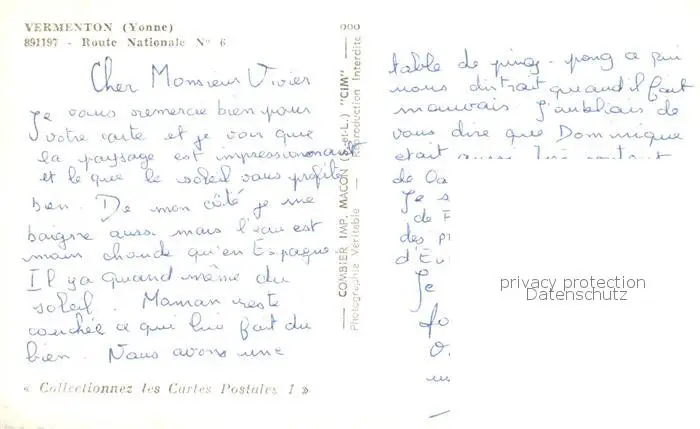 VERMENTON (Yonne)
891197 - Route Nationale N° 6
Cher Monsieur Vivier
Je vous remercie bien pour
votre carte et je vois que
la paysage est impressionnant
et le que le soleil vous profite
bien. De mon côté je me
baigne aussi mais l'eau est
moin chaude qu'en Espagne.
Il ya quand même du
soleil. Maman reste
couchée a qui lui fait du
bien. Nous avons une
« Collectionnez les Cartes Postales ! »
COMBIER IMP. MACON (S.-et-L.) "CIM"
Photographie Véritable — Reproduction Interdite
table de ping-pong a qui
nous distrait quand il fait
mauvais J'oubliais de
vous dire que Dominique
etait
de
Je
de
des
d'
Je
privacy protection
Datenschutz